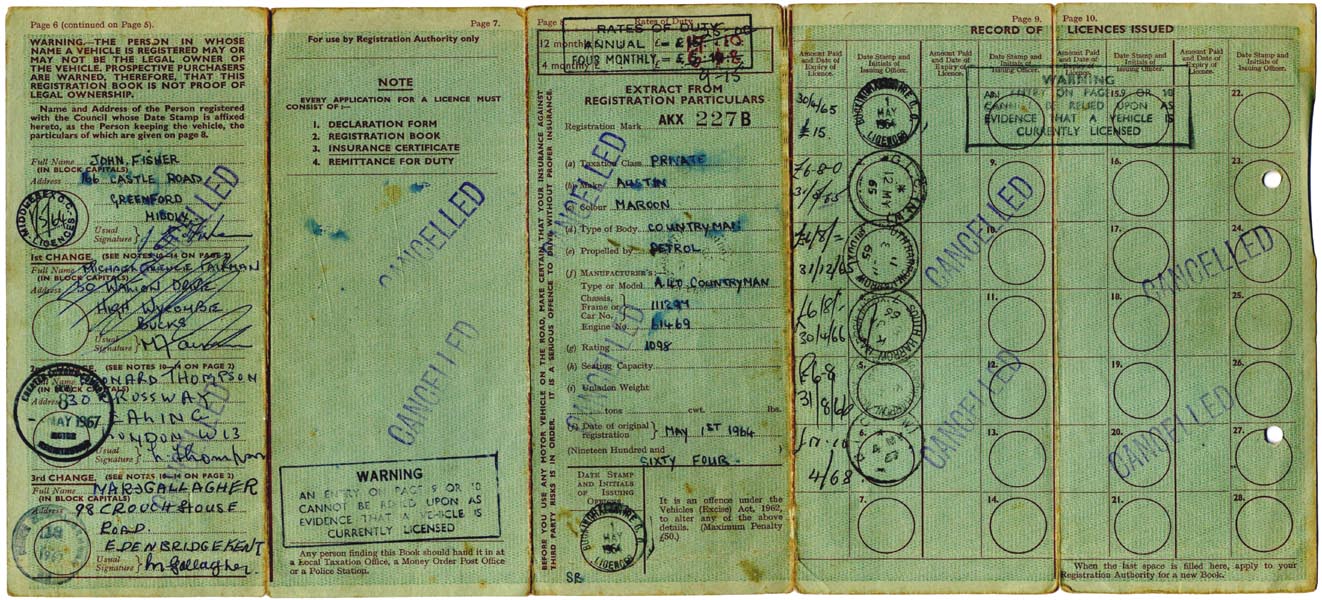 Page 6 (continued on Page 5).
WARNING.—THE PERSON IN WHOSE
NAME A VEHICLE IS REGISTERED MAY OR
MAY NOT BE THE LEGAL OWNER OF
THE VEHICLE. PROSPECTIVE PURCHASERS
ARE WARNED, THEREFORE, THAT THIS
REGISTRATION BOOK IS NOT PROOF OF
LEGAL OWNERSHIP.
Name and Address of the Person registered
with the Council whose Date Stamp is affixed
hereto, as the Person keeping the vehicle, the
particulars of which are given on page 8.
Full Name JOHN FISHER
(IN BLOCK CAPITALS)
Address 166 CASTLE ROAD
GREENFORD
MIDDX
MIDDLESEX C.C.
LICENCES
Usual
Signature
CANCELLED
1st CHANGE. (SEE NOTES 10—14 ON PAGE 2)
Full Name MICHAEL
(IN BLOCK CAPITALS)
Address 50 DRIVE
HIGH WYCOMBE
BUCKS
Usual
Signature
CHANGE. (SEE NOTES 10—14 ON PAGE 2)
Full Name LEONARD THOMPSON
(IN BLOCK CAPITALS)
Address 30 CROSSWAY
EALING
LONDON W13
8
MAY 1967
Usual
Signature L. Thompson
CANCELLED
3rd CHANGE. (SEE NOTES 10—14 ON PAGE 2)
Full Name MARJ GALLAGHER
(IN BLOCK CAPITALS)
Address 98 CROUCH HOUSE
ROAD.
EDENBRIDGE KENT
Usual
Signature M Gallagher.
Page 7.
For use by Registration Authority only
NOTE
EVERY APPLICATION FOR A LICENCE MUST
CONSIST OF :—
1. DECLARATION FORM
2. REGISTRATION BOOK
3. INSURANCE CERTIFICATE
4. REMITTANCE FOR DUTY
CANCELLED
CANCELLED
WARNING
AN ENTRY ON PAGE 9 OR 10
CANNOT BE RELIED UPON AS
EVIDENCE THAT A VEHICLE IS
CURRENTLY LICENSED
Any person finding this Book should hand it in at
a Local Taxation Office, a Money Order Post Office
or a Police Station.
BEFORE YOU USE ANY MOTOR VEHICLE ON THE ROAD, MAKE CERTAIN THAT YOUR INSURANCE AGAINST
THIRD PARTY RISKS IS IN ORDER. IT IS A SERIOUS OFFENCE TO DRIVE WITHOUT PROPER INSURANCE.
Page 8. Rates of Duty
RATES OF DUTY
12 months
ANNUAL
4 months
FOUR MONTHLY
9-15
EXTRACT FROM
REGISTRATION PARTICULARS
Registration Mark AKX 227B
(a) Taxation Class PRIVATE
(b) Make AUSTIN
Colour MAROON
(d) Type of Body COUNTRYMAN
(e) Propelled by PETROL
(f) MANUFACTURER'S:
Type or Model A.40 COUNTRYMAN
Chassis,
Frame or
Car No. 111297
Engine No. 61469
(g) Rating 1098
(h) Seating Capacity
(i) Unladen Weight
tons cwt. lbs.
Date of original
registration MAY 1ST 1964
(Nineteen Hundred and
SIXTY FOUR - )
CANCELLED
CANCELLED
DATE STAMP
AND INITIALS
OF ISSUING
OFFICER
BUCKINGHAMSHIRE C.C.
1
MAY
1964
LICENCES
SB
It is an offence under the
Vehicles (Excise) Act, 1962,
to alter any of the above
details. (Maximum Penalty
£50.)
Page 9.
RECORD OF
Page 10.
LICENCES ISSUED
Amount Paid
and Date of
Expiry of
Licence.
Date Stamp and
Initials of
Issuing Officer.
Amount Paid
and Date of
Expiry of
Licence.
Date Stamp and
Initials of
Issuing Officer.
Amount Paid
and Date of
Expiry of
Licence.
Date Stamp and
Initials of
Issuing Officer.
Amount Paid
and Date of
Expiry of
Licence.
Date Stamp and
Initials of
Issuing Officer.
WARNING
AN ENTRY ON PAGE 9 OR 10
CANNOT BE RELIED UPON AS
EVIDENCE THAT A VEHICLE IS
CURRENTLY LICENSED
30/4/65
£15.
BUCKINGHAMSHIRE C.C.
1
MAY
1964
LICENCES
£6-8-0
31/8/65
12 MY
65
£6/8/=
31/12/6
£6/8/-
30/4/66
SOUTH HARROW
£6-8
31/8/66
£17.10
4/68
5.
6.
7.
9.
10.
11.
12.
13.
14.
15.
16.
17.
18.
19.
20.
21.
22.
23.
24.
25.
26.
27.
28.
CANCELLED
CANCELLED
CANCELLED
CANCELLED
When the last space is filled here, apply to your
Registration Authority for a new Book.